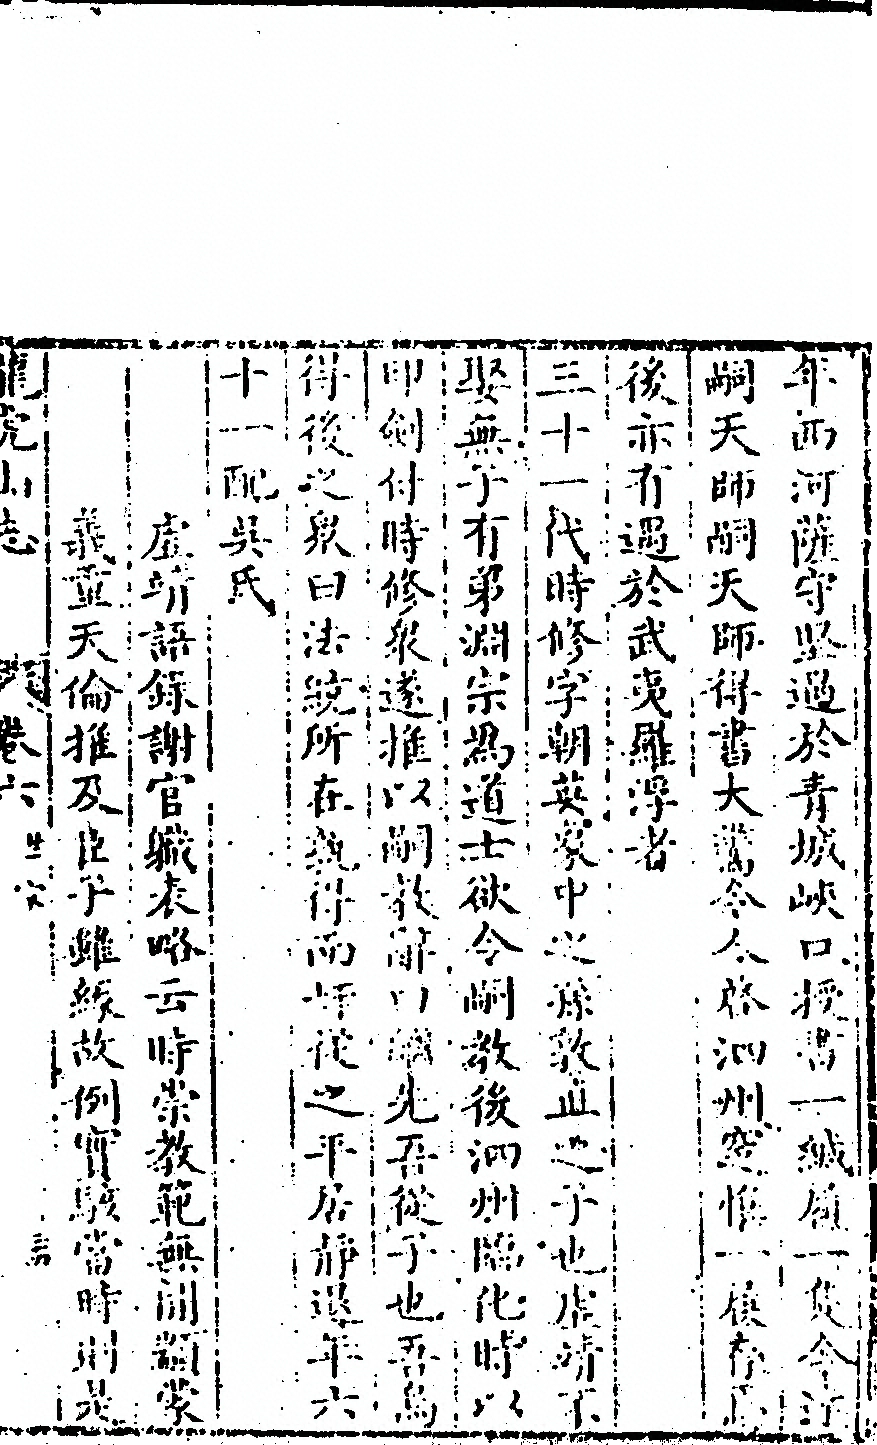 年西河薩守堅過於青城峽口授書一緘履一隻令訂
嗣天師嗣天師得書大驚令人啓泗州窆惟一履存焉
後亦有遇於武夷羅浮者
三十一代時修字朝英象中之孫敦直之子也虛靖不
娶無子有弟淵宗為道士欲令嗣教後泗州臨化時以
印劍付時修眾遂推以嗣教辭曰嗣先吾從子也吾為
得後之眾曰法統所在義得而拜從之平居靜退年六
十一配吳氏
虛靖語錄謝官職表略云時崇教範無開顓蒙
義重天倫推及臣子雖緣故例實駭當時則是
龍虎山志 卷六